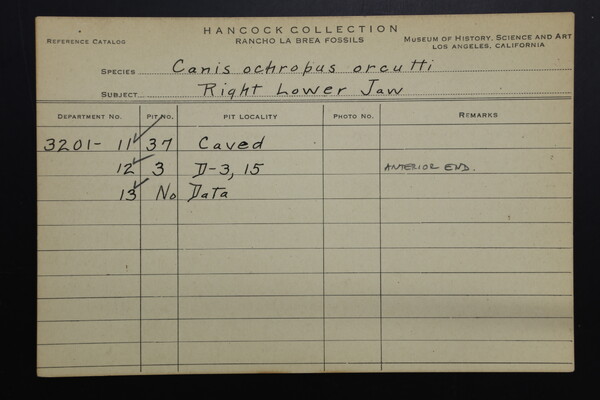 HANCOCK COLLECTION
REFERENCE CATALOG RANCHO LA BREA FOSSILS MUSEUM OF HISTORY, SCIENCE AND ART
LOS ANGELES, CALIFORNIA
SPECIES Canis ochropus orcutti
SUBJECT Right Lower Jaw
DEPARTMENT NO. PIT NO. PIT LOCALITY PHOTO NO. REMARKS
3201- 11 ✓ 37 Caved
12 ✓ 3 D-3, 15 ANTERIOR END.
13 ✓ No Data